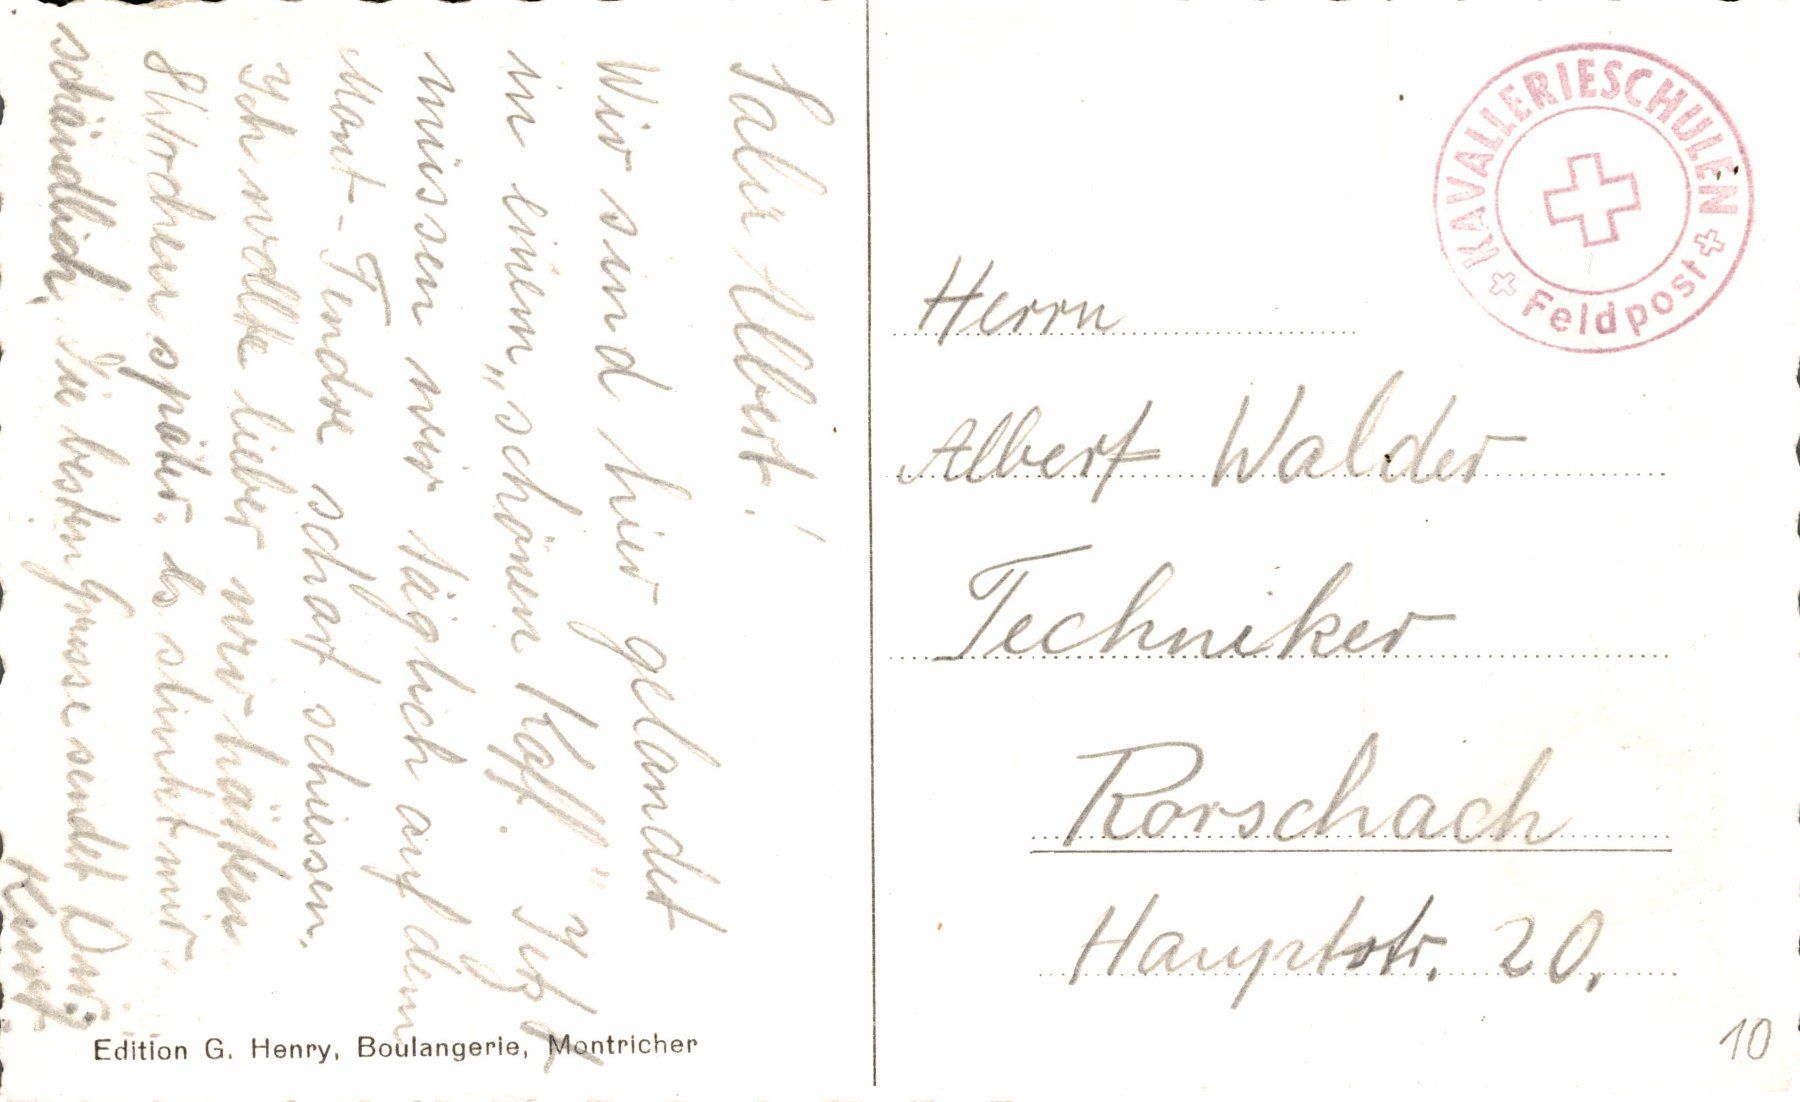 Salü Albert!
Wir sind hier gelandet
in einem „schönen Kaff." Jetzt
müssen wir täglich auf dem
Mont-Tendre scharf schiessen.
Ich wollte lieber wir hätten
8 Wochen später. Es stinkt mir
schändlich. Die besten Grüsse sendet Dir
Kurt
Edition G. Henry, Boulangerie, Montricher
KAVALLERIESCHULEN
Feldpost
Herrn
Albert Walder
Techniker
Rorschach
Hauptstr. 20.
10